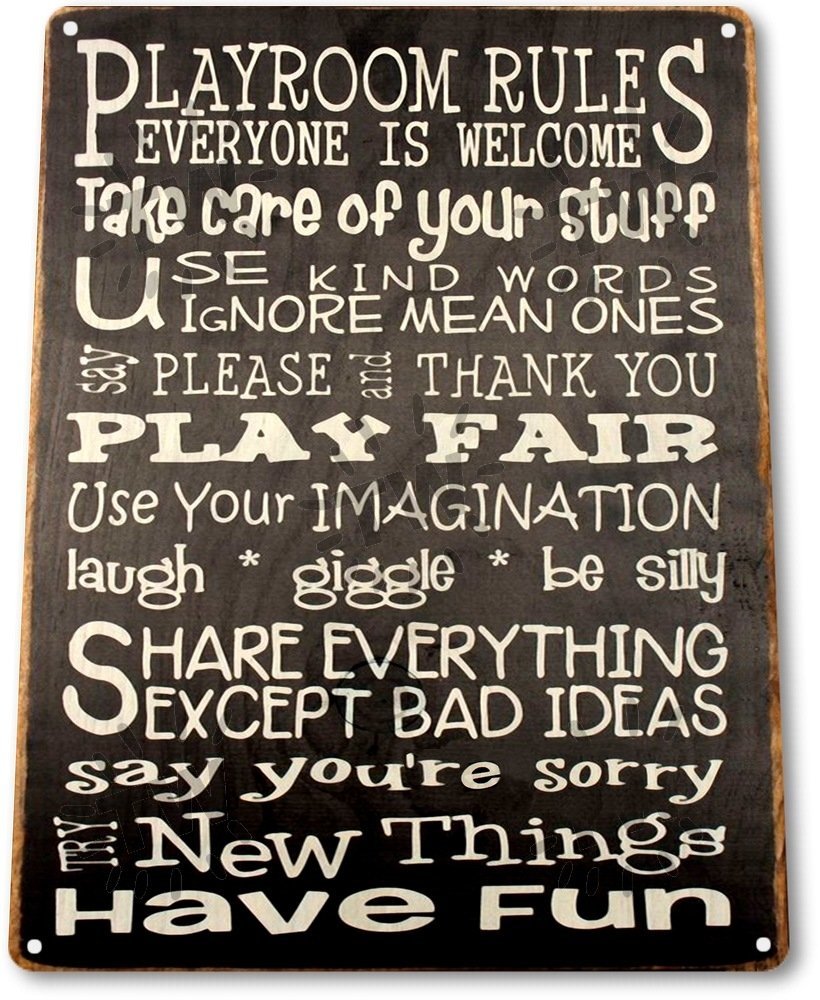 PLAYROOM RULES
EVERYONE IS WELCOME
Take care of your stuff
USE KIND WORDS
IGNORE MEAN ONES
say PLEASE and THANK YOU
PLAY FAIR
Use Your IMAGINATION
laugh * giggle * be silly
SHARE EVERYTHING
EXCEPT BAD IDEAS
say you're sorry
TRY New Things
Have Fun